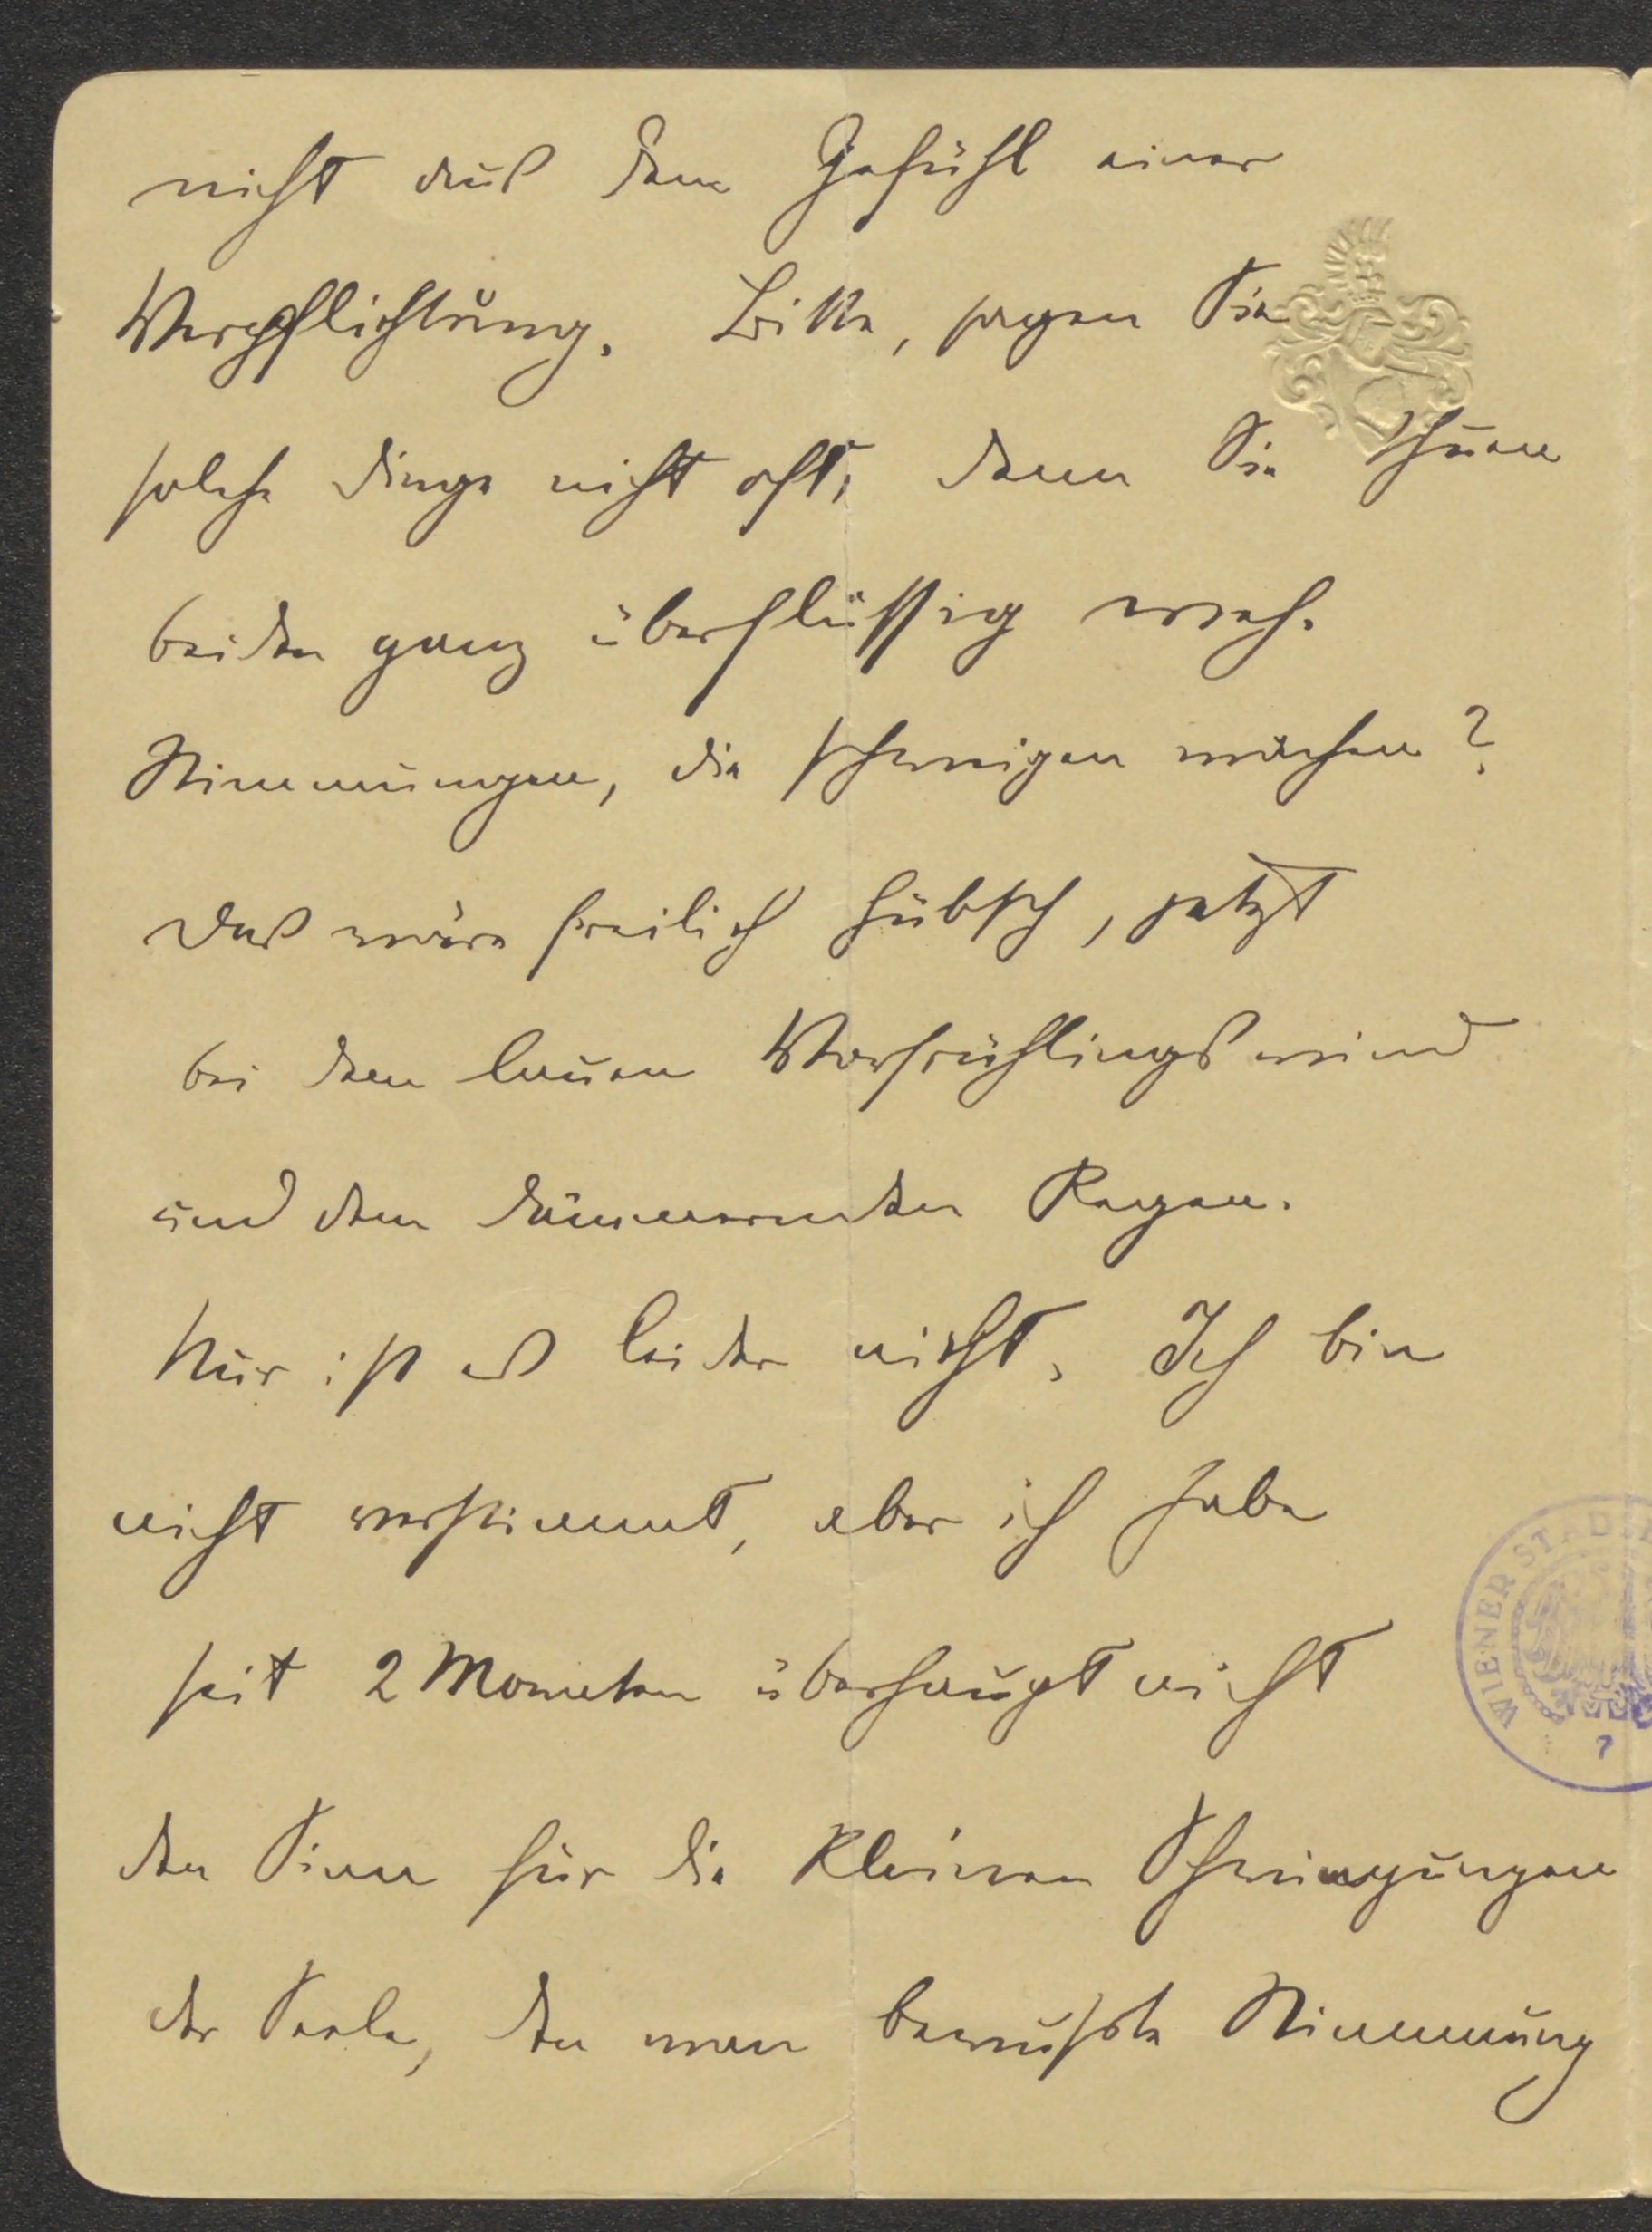 nicht aus dem Gefühl einer
Verpflichtung. Bitte, sagen Sie
solche Dinge nicht oft; denn Sie thuen
beiden ganz überflüssig weh.
Stimmungen, die schweigen machen?
Das wäre freilich hübsch, jetzt
bei dem lauen Vorfrühlingswind
und dem dämmernden Regen.
Nur ist es leider nicht. Ich bin
nicht verstimmt, aber ich habe
seit 2 Monaten überhaupt nicht
den Sinn für die kleinen Schwingungen
der Seele, den man bewußte Stimmung
WIENER STADT
7